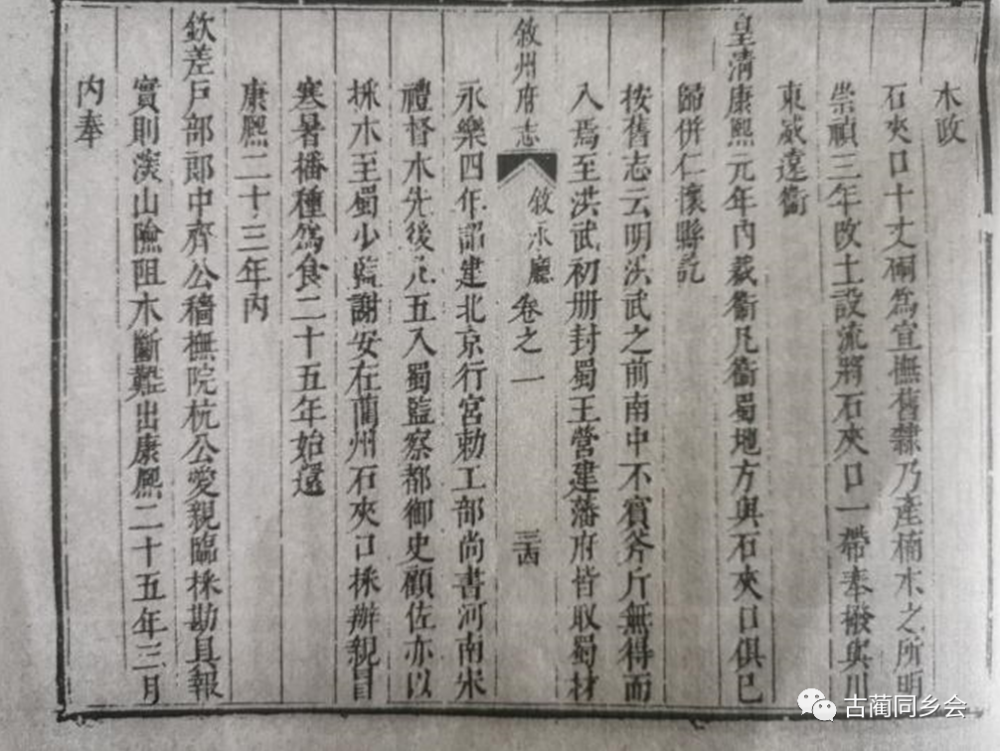 木政
石夾口十丈硐為宣撫舊隸乃產楠木之所明
崇禎三年改土設流將石夾口一帶奉撥與川
東威遠衞
皇清康熙元年內裁衞凡衞蜀地方與石夾口俱已
歸併仁懷縣訖
按舊志云明洪武之前南中不賓斧斤無得而
入焉至洪武初册封蜀王營建藩府皆取蜀材
敘州府志 敘永廳卷之一 三十四
永樂四年詔建北京行宮勅工部尚書河南宋
禮督木先後凡五入蜀監察都御史顧佐亦以
採木至蜀少監謝安在藺州石夾口採辦親冒
寒暑播種為食二十五年始還
康熙二十三年內
欽差戶部郎中齊公穡撫院杭公愛親臨採勘具報
實則深山險阻木斷難出康熙二十五年三月
內奉
古藺同乡会